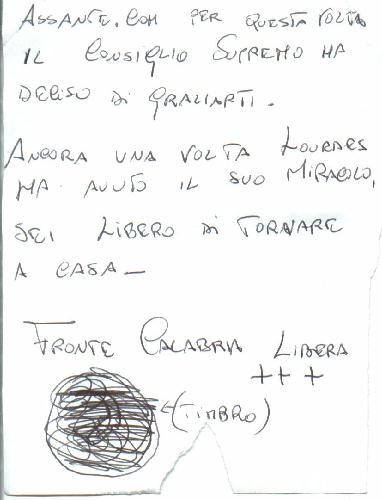 ASSANTE.COM PER QUESTA VOLTA
IL CONSIGLIO SUPREMO HA
DECISO DI GRAZIARTI.
ANCORA UNA VOLTA LOURDES
HA AVUTO IL SUO MIRACOLO,
SEI LIBERO DI TORNARE
A CASA—
FRONTE CALABRIA LIBERA
+++
(TIMBRO)